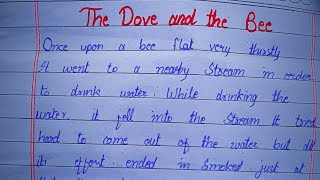 The Dove and the Bee
Once upon a bee flat very thirstly
It went to a nearby Stream in order
to drink water. While drinking the
water, it fell into the Stream It tried
hard to come out of the water but all
its effort. ended in Smoked just at